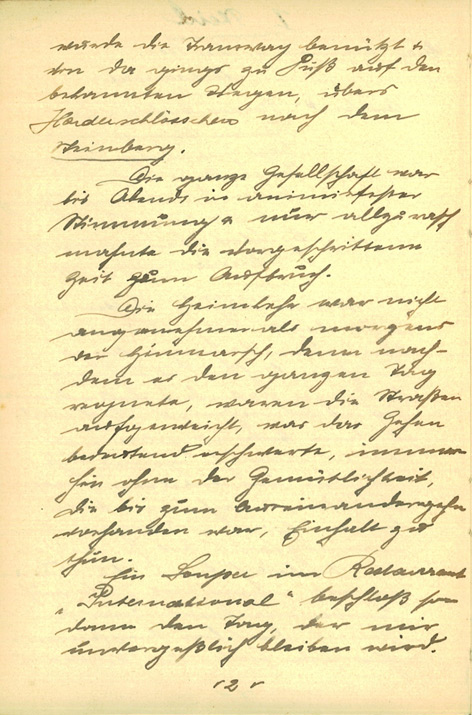 wurde die Tramway benützt &
von da gings zu Fuß auf den
bekannten Wegen, übers
Harderschlösschen nach dem
Steinberg.
Die ganze Gesellschaft war
bis Abends in animirtester
Stimmung & nur allzu rasch
mahnte die vorgeschrittene
Zeit zum Aufbruch.
Die Heimkehr war nicht
angenehmer als morgens
der Hinmarsch, denn nach-
dem es den ganzen Tag
regnete, waren die Straßen
aufgeweicht, was das Gehen
bedeutend erschwerte, immer
hin ohne der Gemütlichkeit,
die bis zum Auseinandergehn
vorhanden war, Einhalt zu
thun.
Ein Souper im Restaurant
„International" beschloß so
dann den Tag, der mir
unvergeßlich bleiben wird.
2